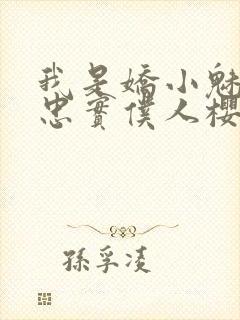 我是嬌小魅
忠實僕人櫻
孫孚凌